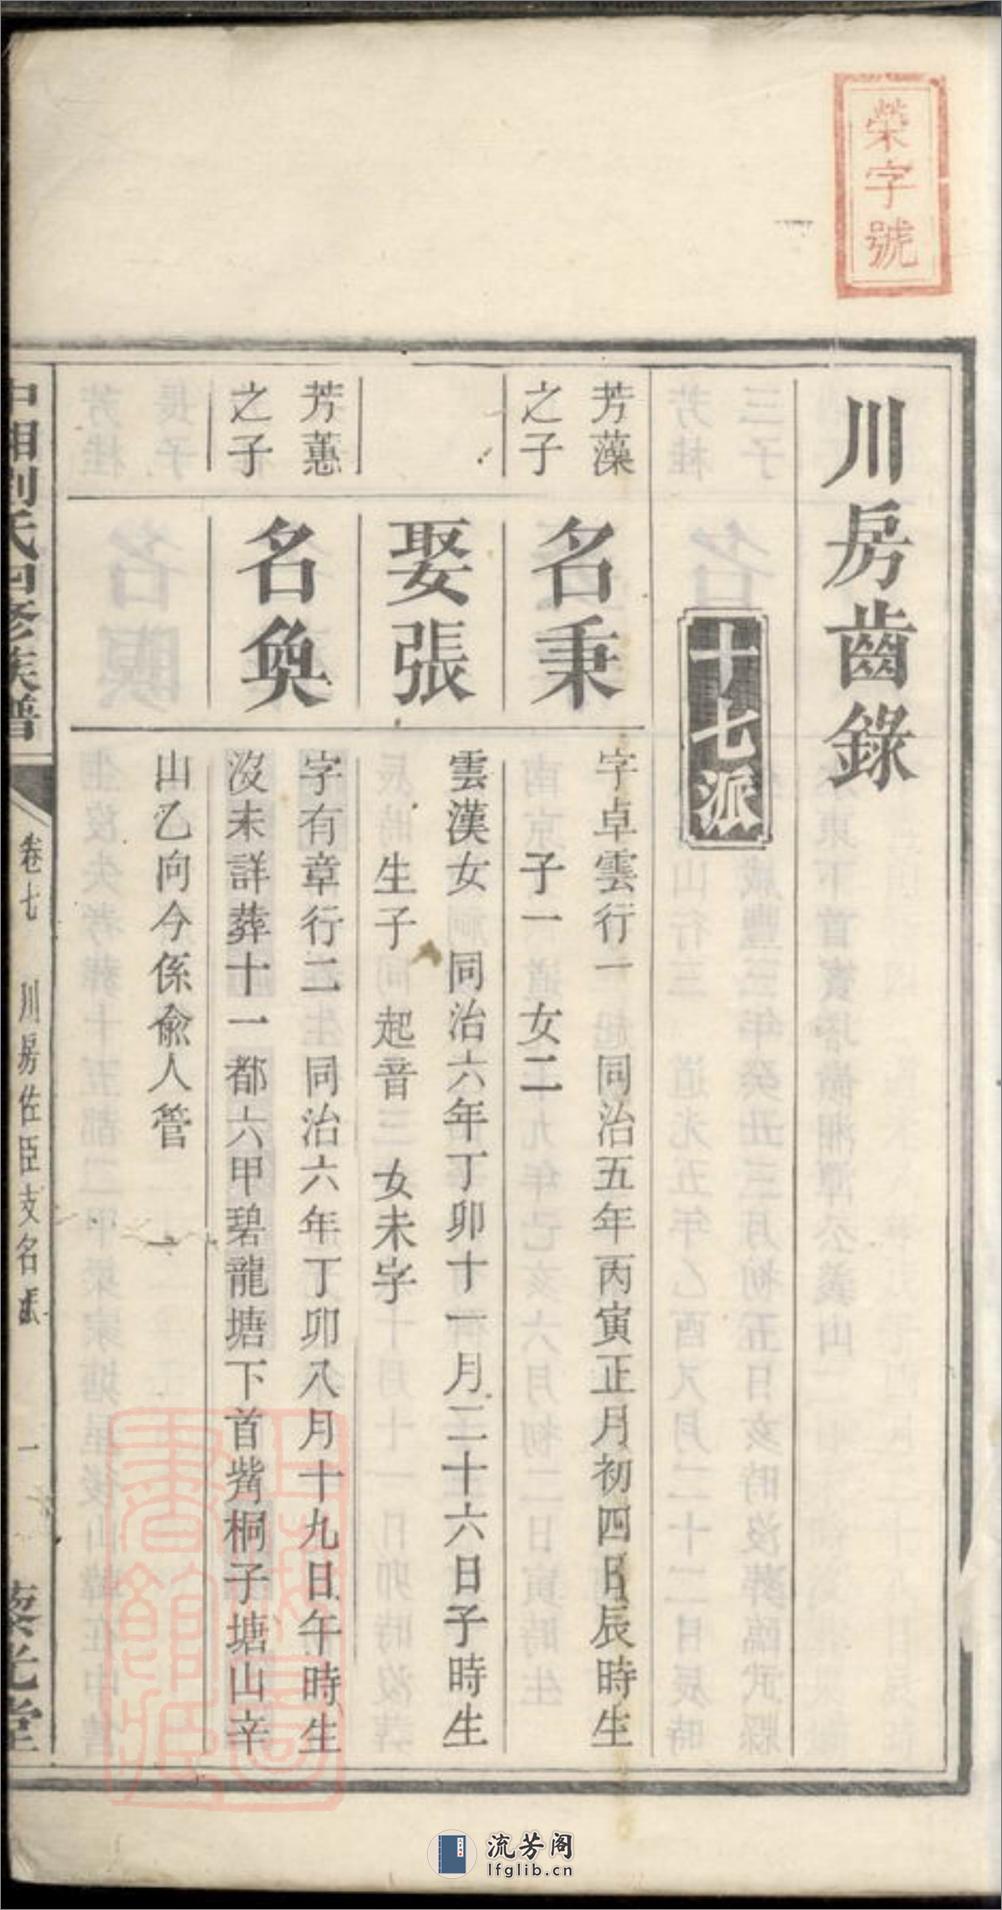 榮字號
川房齒錄
十七派
芳藻
之子
名秉
字卓雲行一 同治五年丙寅正月初四日辰時生
子一 女二
娶張
雲漢女 同治六年丁卯十一月二十六日子時生
生子 起音 女未字
芳蕙
之子
名奐
字有章行二 同治六年丁卯八月十九日午時生
沒未詳葬十一都六甲碧龍塘下首觜桐子塘山辛
山乙向今係俞人管
中湘劉氏四修族譜
卷七 川房佐臣支名派 一
藜光堂
流芳阁
lfglib.cn